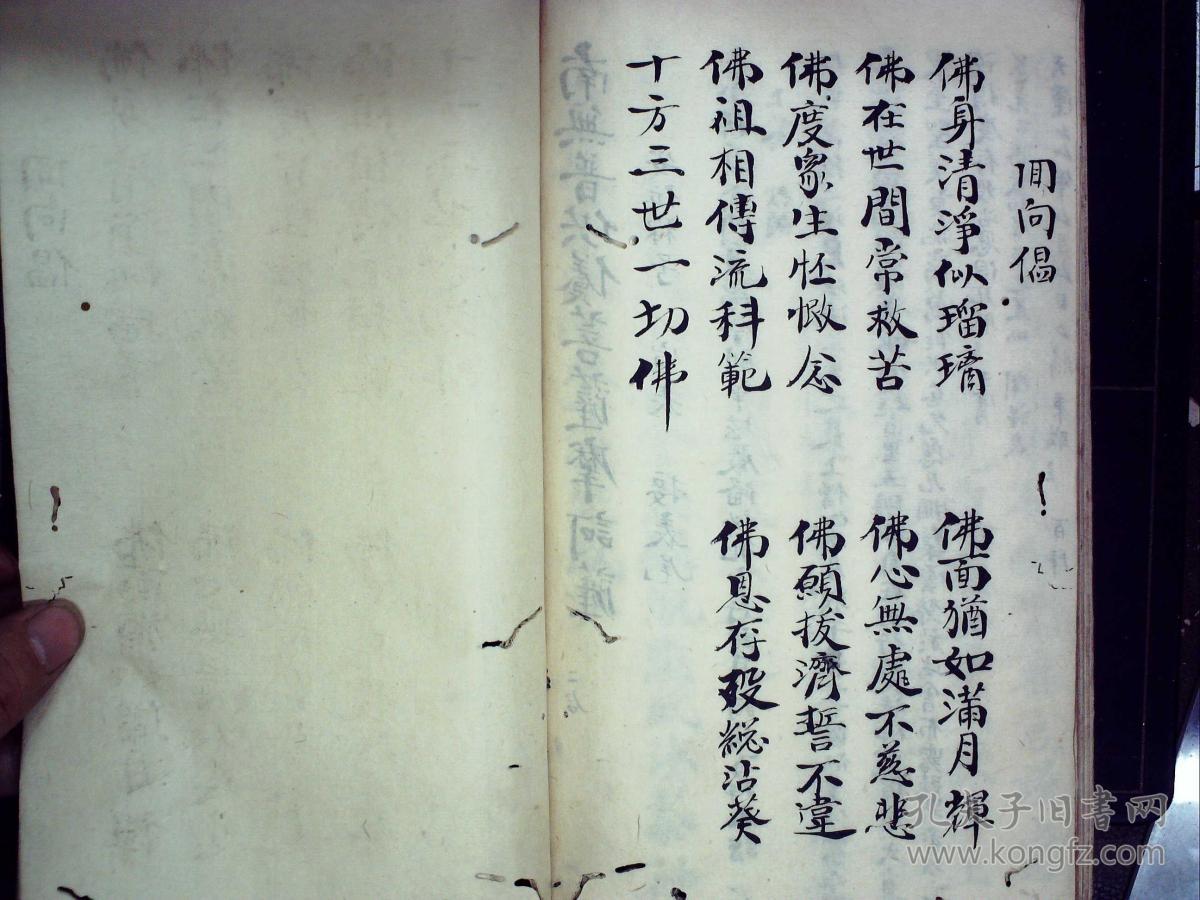 囬向偈
佛身清淨似瑠璃 佛面猶如滿月輝
佛在世間常救苦 佛心無處不慈悲
佛度眾生念 佛願拔濟誓不違
佛祖相傳流科範 佛恩存歿総沾葵
十方三世一切佛
孔夫子旧書网
www.kongfz.com